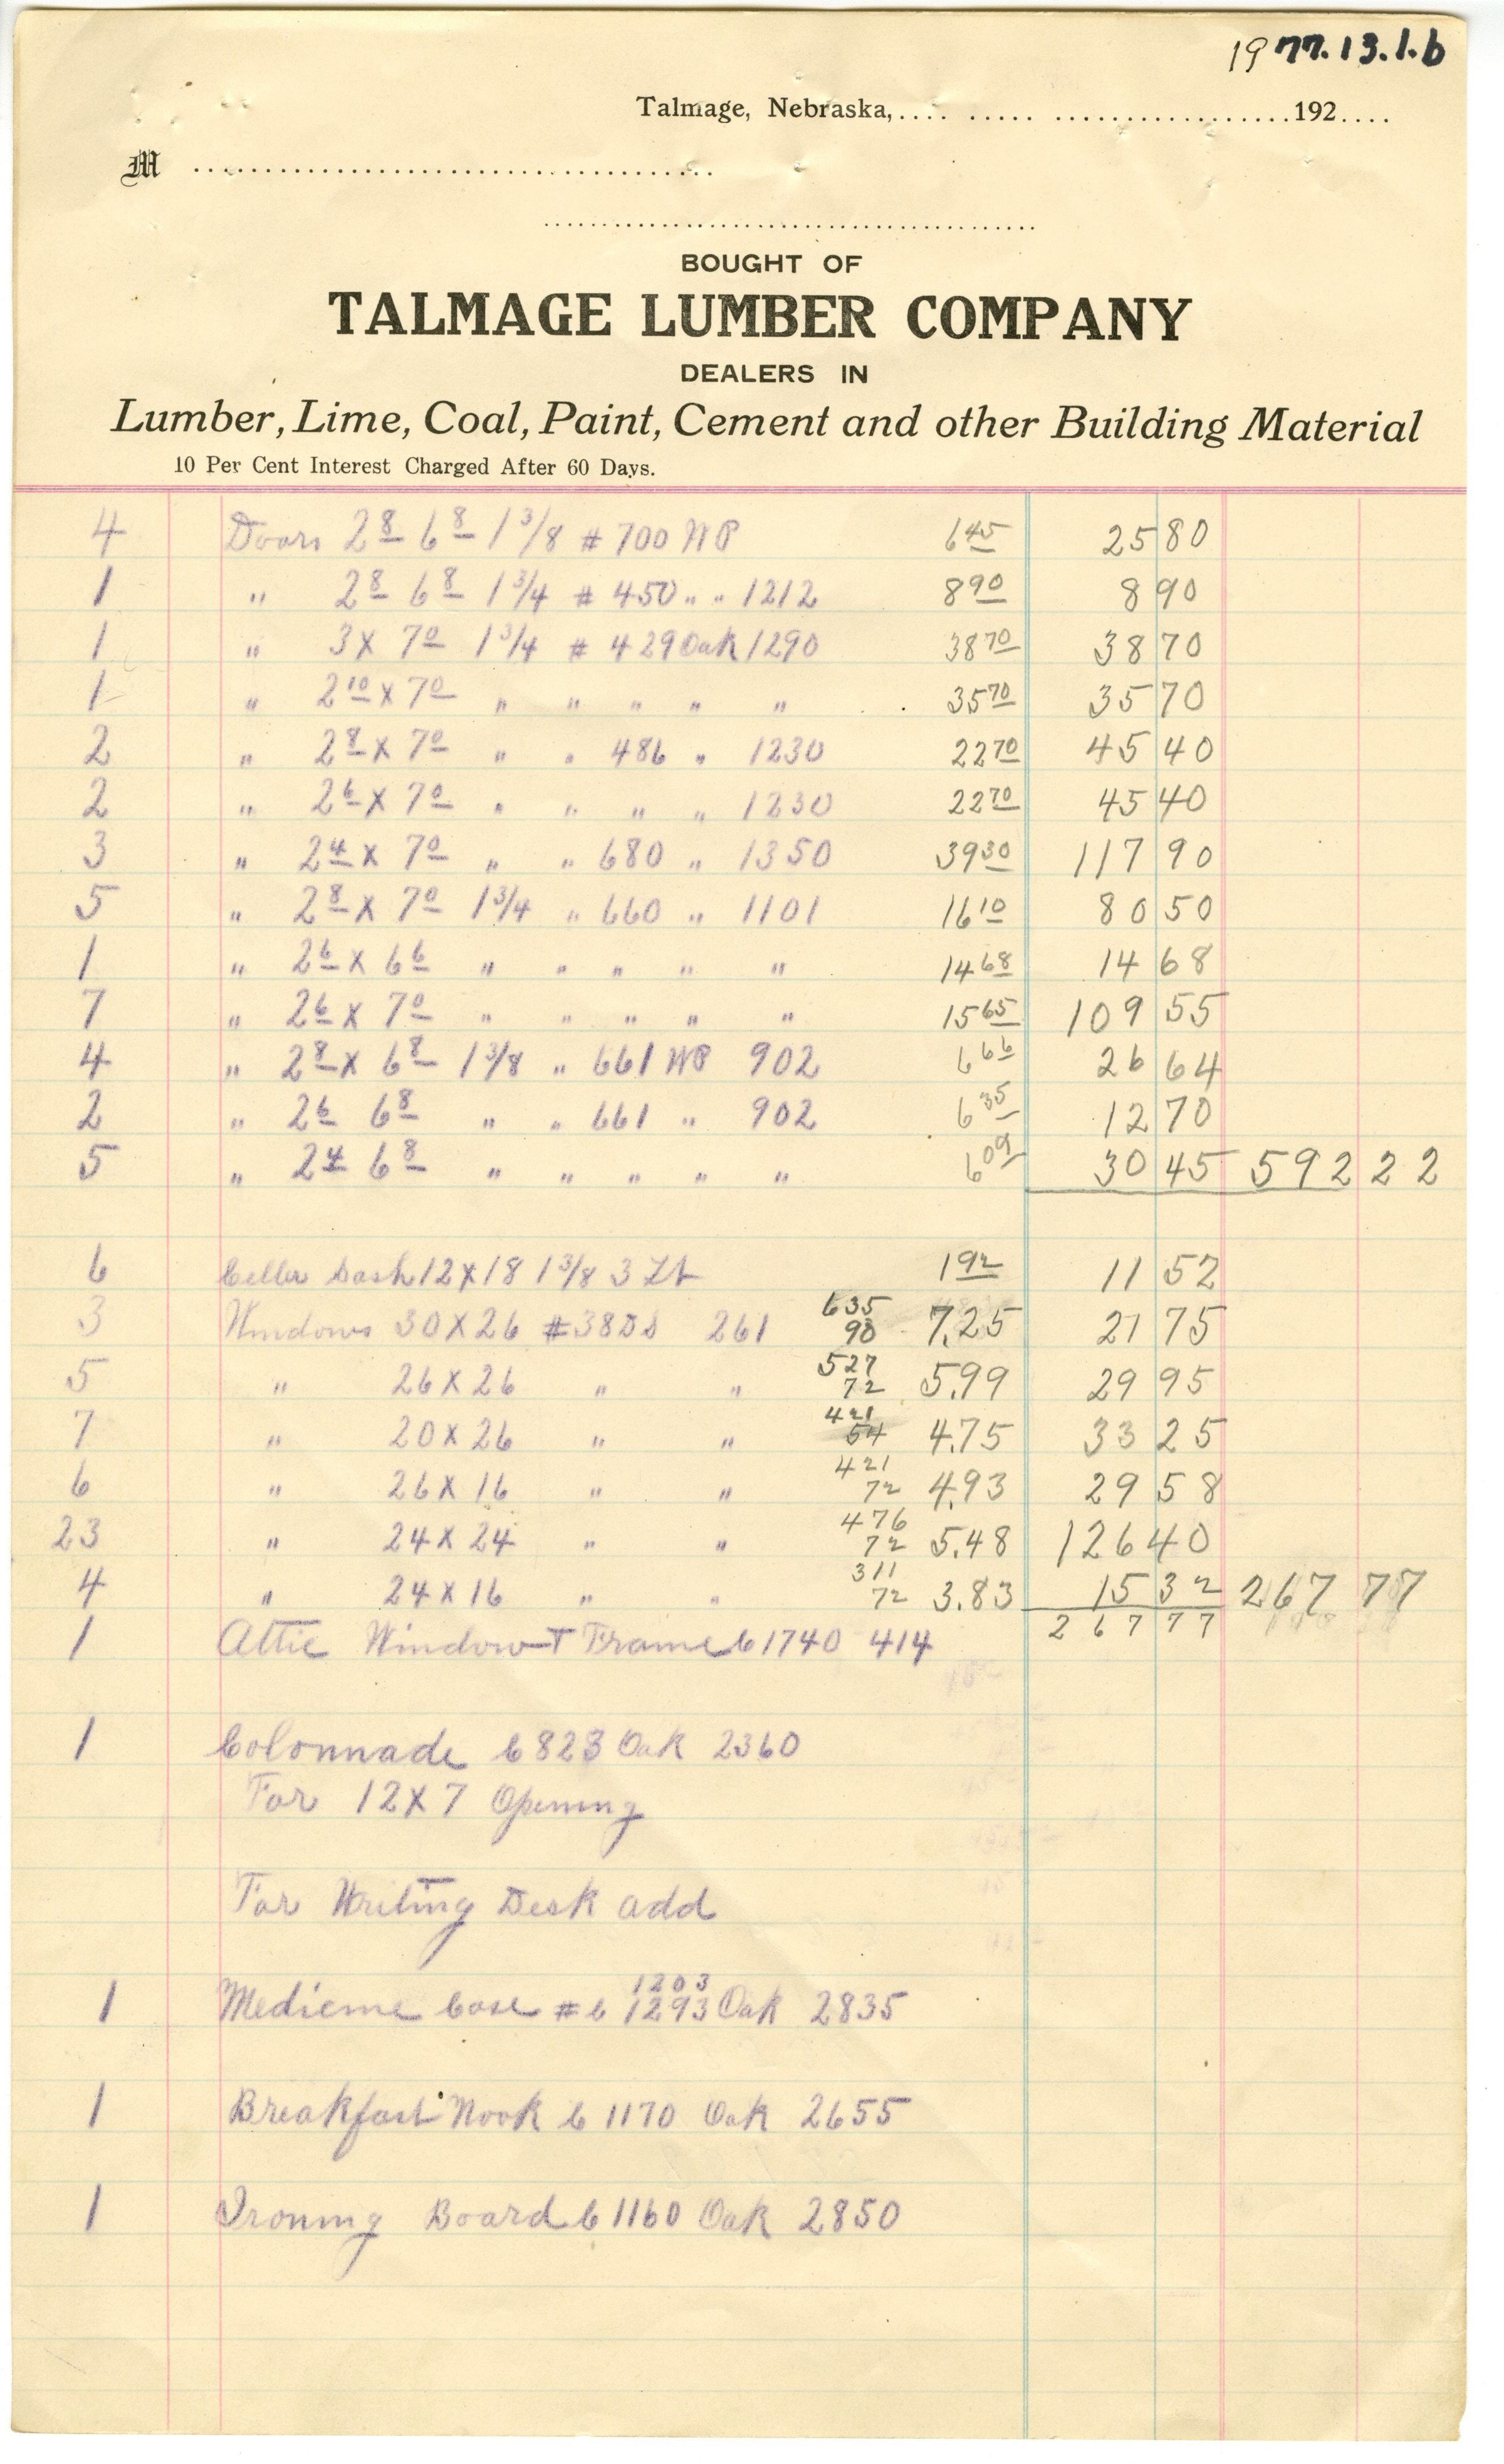 1977.13.1.b
Talmage, Nebraska, 192
M
BOUGHT OF
TALMAGE LUMBER COMPANY
DEALERS IN
Lumber, Lime, Coal, Paint, Cement and other Building Material
10 Per Cent Interest Charged After 60 Days.
4 Doors 2 8 6 8 1 3/8 # 700 WP 6 45 25 80
1 " 2 8 6 8 1 3/4 # 450 " " 1212 8 90 8 90
1 " 3 X 7 0 1 3/4 # 429 Oak 1290 38 70 38 70
1 " 2 10 X 7 0 " " " " " 35 70 35 70
2 " 2 8 X 7 0 " " 486 " 1230 22 70 45 40
2 " 2 6 X 7 0 " " " " 1230 22 70 45 40
3 " 2 4 X 7 0 " " 680 " 1350 39 30 117 90
5 " 2 8 X 7 0 1 3/4 " 660 " 1101 16 10 80 50
1 " 2 6 X 6 6 " " " " " 14 68 14 68
7 " 2 6 X 7 0 " " " " " 15 65 109 55
4 " 2 8 X 6 8 1 3/8 " 661 WP 902 6 66 26 64
2 " 2 6 6 8 " " 661 " 902 6 35 12 70
5 " 2 4 6 8 " " " " " 6 09 30 45 592 22
6 Celler Sash 12 X 18 1 3/8 3 Lt 1 92 11 52
3 Windows 30 X 26 # 38 DS 261 635 90 7.25 21 75
5 " 26 X 26 " " 527 72 5.99 29 95
7 " 20 X 26 " " 421 54 4.75 33 25
6 " 26 X 16 " " 421 72 4.93 29 58
23 " 24 X 24 " " 476 72 5.48 126 40
4 " 24 X 16 " " 311 72 3.83 15 32 267 77
267 77
1 Attic Window + Frame C 1740 414
1 Colonnade C 823 Oak 2360
For 12 X 7 Opening
For Writing Desk add
1203
1 Medicine Case # C 1293 Oak 2835
1 Breakfast Nook C 1170 Oak 2655
1 Ironing Board C 1160 Oak 2850